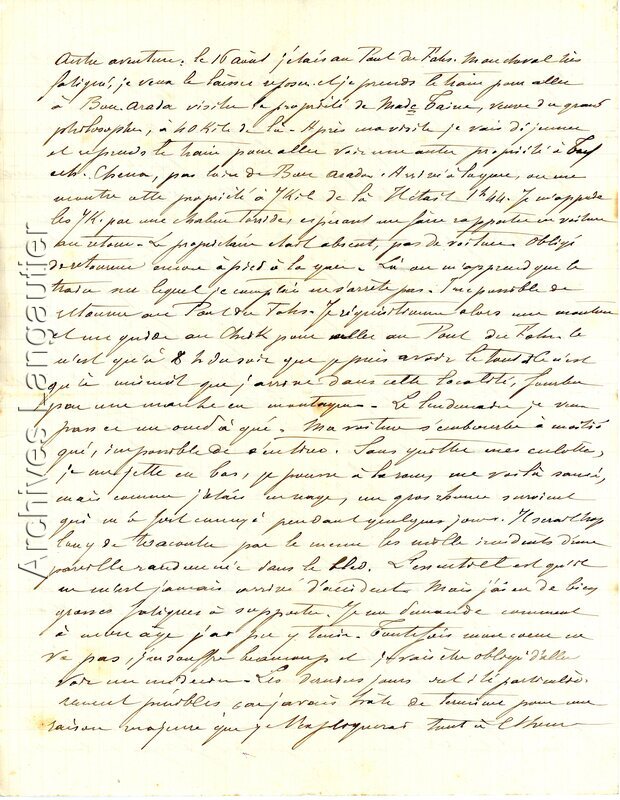 Autre aventure. le 16 août j'étais au Pont du Fahs. Mon cheval très
fatigué, je veux le laisser reposer et je prends le train pour aller
à Bou-Arada visiter la propriété de Made Taine, veuve du grand
philosophe, à 40 Kil. de là. Après ma visite je vais déjeuner
et reprends le train pour aller voir une autre propriété à
pas loin de Bou Arada. Arrivé à la gare, on me
montre cette propriété à 7 Kil. de là. Il était 1h 44. Je m'appuie
les 7 K. par une chaleur torride, espérant me faire rapporter en voiture
au retour. Le propriétaire était absent, pas de voiture. Obligé
de retourner encore à pied à la gare. Là on m'apprend que le
train sur lequel je comptais ne s'arrête pas. Impossible de
retourner au Pont du Fahs. Je réquisitionne alors une monture
et un guide au Cheik pour aller au Pont du Fahs. Ce
n'est qu'à 8 h du soir que je puis avoir le tout et ce n'est
qu'à minuit que j'arrive dans cette localité, fourbu
par une marche en montagne. Le lendemain je veux
passer un oued à gué. Ma voiture s'embourbe à moitié
gué, impossible de s'en tirer. Sans quitter mes culottes,
je me jette en bas, je pousse à la roue, me voilà sauvé,
mais comme j'étais en nage, un gros rhume survient
qui m'a fort ennuyé pendant quelques jours. Il serait trop
long de raconter par le menu les mille incidents d'une
pareille randonnée dans le bled. L'essentiel est qu'il
ne m'est jamais arrivé d'accidents. Mais j'ai eu de bien
grosses fatigues à supporter. Je me demande comment
à mon âge j'ai pu y tenir. Toutefois mon coeur ne
va pas, j'en souffre beaucoup et je vais être obligé d'aller
voir un médecin. Les derniers jours ont été particuliè-
rement pénibles car j'avais hâte de terminer pour une
raison majeure que je t'expliquerai tout à l'heure
Archives Langautier